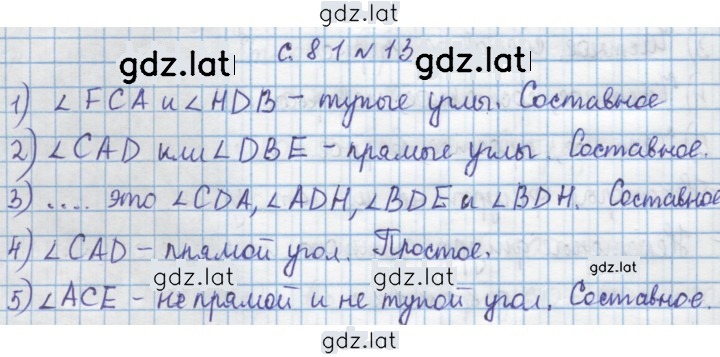 gdz.lat
с. 81 № 13
gdz.lat gdz.lat
1) ∠ FCA и ∠ HDB – тупые углы. Составное
2) ∠ CAD или ∠ DBE – прямые углы. Составное.
gdz.lat gdz.lat
3) .... это ∠ CDA, ∠ ADH, ∠ BDE и ∠ BDH. Составное
4) ∠ CAD – прямой угол. Простое.
gdz.lat gdz.lat
5) ∠ ACE – не прямой и не тупой угол. Составное.
gdz.lat